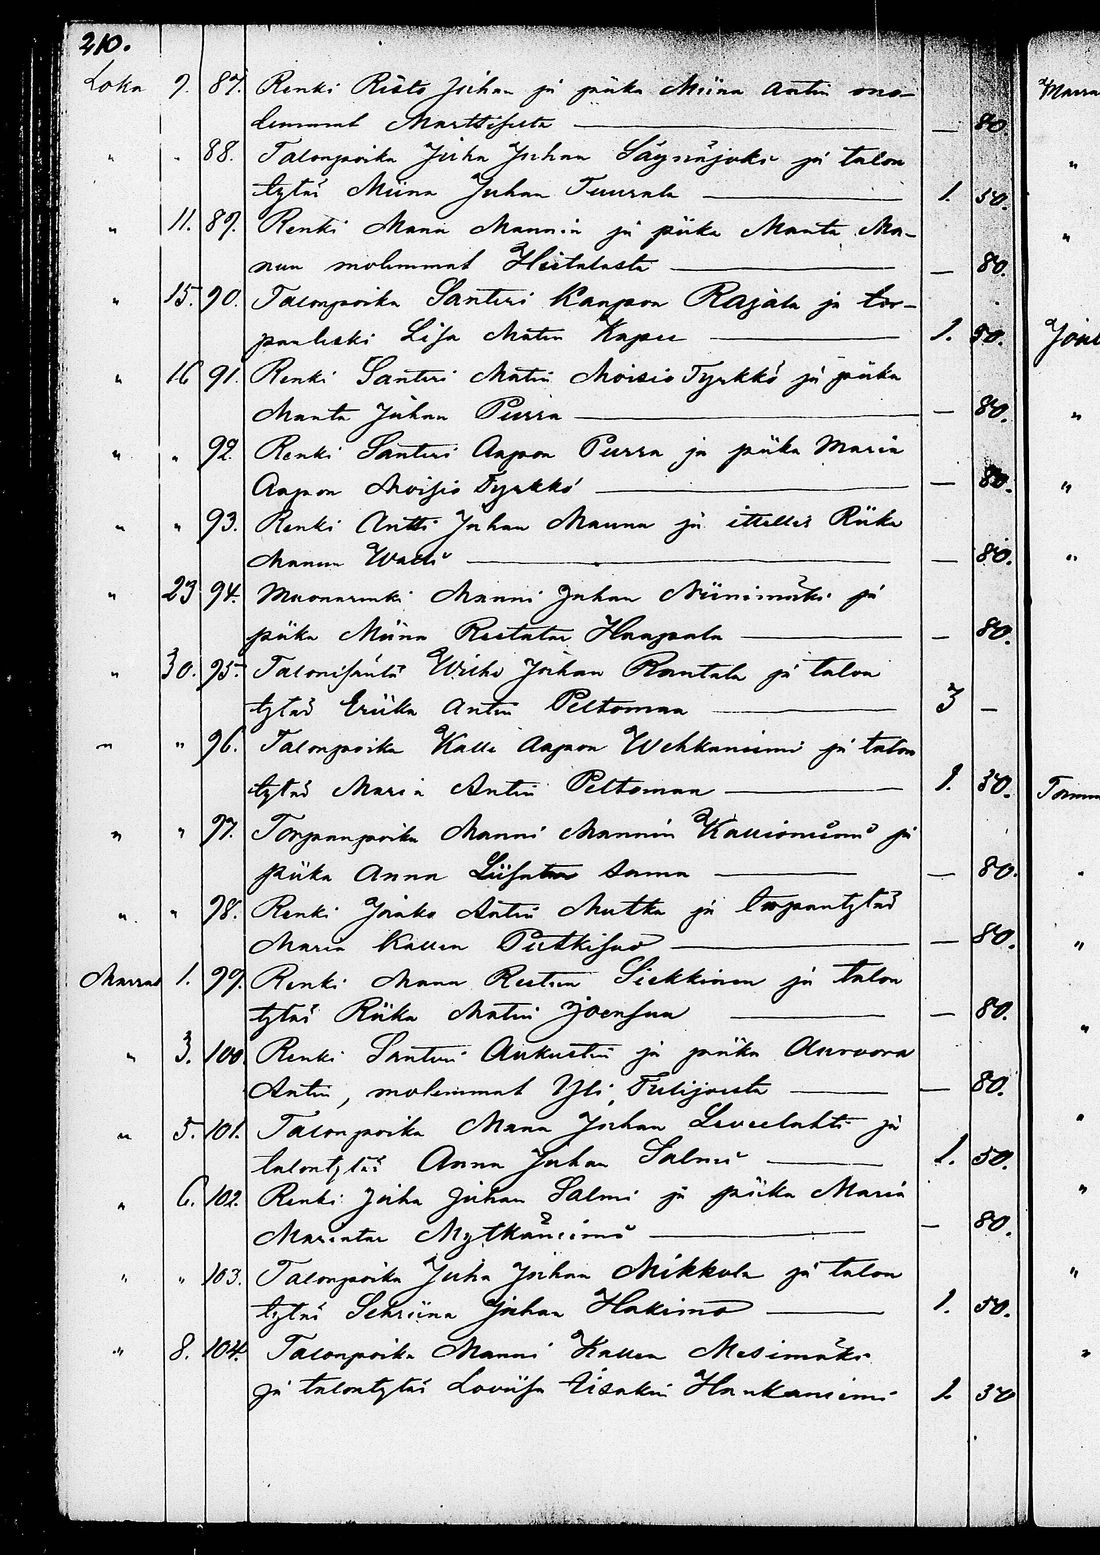 210.
Loka 9. 87. Renki Risto Juhan ja piika Miina Antin mo-
lemmat Marttilasta — 80.
" " 88. Talonpoika Juha Juhan Säynäjoki ja talon
tytär Miina Juhan Tuurala 1. 50.
" 11. 89. Renki Manu Mannin ja piika Manta Ma-
nun molemmat Heitalasta — 80.
" 15. 90. Talonpoika Santeri Kaapon Rajala ja tor-
panleski Lisa Matin Kapee 1. 50.
" 16 91. Renki Santeri Matin Moisio Tyrkkö ja piika
Manta Juhan Purra — 80.
" " 92. Renki Santeri Aapon Purra ja piika Maria
Aapon Moisio Tyrkkö — 80.
" " 93. Renki Antti Juhan Mauna ja itellis Riika
Manun Walli — 80.
" 23 94. Muonarenki Manni Juhan Niinimäki ja
piika Miina Reetatar Haapala — 80.
" 30. 95. Talonisäntä Wiihe Juhan Rantala ja talon
tytär Eriika Antin Peltomaa 3 –
" " 96. Talonpoika Kalle Aapon Wehkaniemi ja talon
tytär Maria Antin Peltomaa 1. 50.
" " 97. Torpanpoika Manni Mannin Kallioniemi ja
piika Anna Liisatar sama — 80.
" " 98. Renki Jaako Antin Mutka ja torpantytär
Maria Kallen Pitkisuo — 80.
Marras 1. 99. Renki Manu Restun Siekkinen ja talon
tytär Riika Matin Joensuu — 80.
" 3. 100. Renki Santeri Aukustin ja piika Auroora
Antin, molemmat Yli Tulijoesta — 80.
" 5. 101. Talonpoika Manu Juhan Leveelahti ja
talontytär Anna Juhan Salmi 1. 50.
" 6. 102. Renki Juha Juhan Salmi ja piika Maria
Mariatar Mytkäniemi — 80.
" " 103. Talonpoika Juha Juhan Mikkola ja talon
tytär Sehriina Juhan Hakimo 1. 50.
" 8. 104. Talonpoika Manni Kallen Mesimäki
ja talontytär Loviisa Iisakin Hankaniemi 1. 50